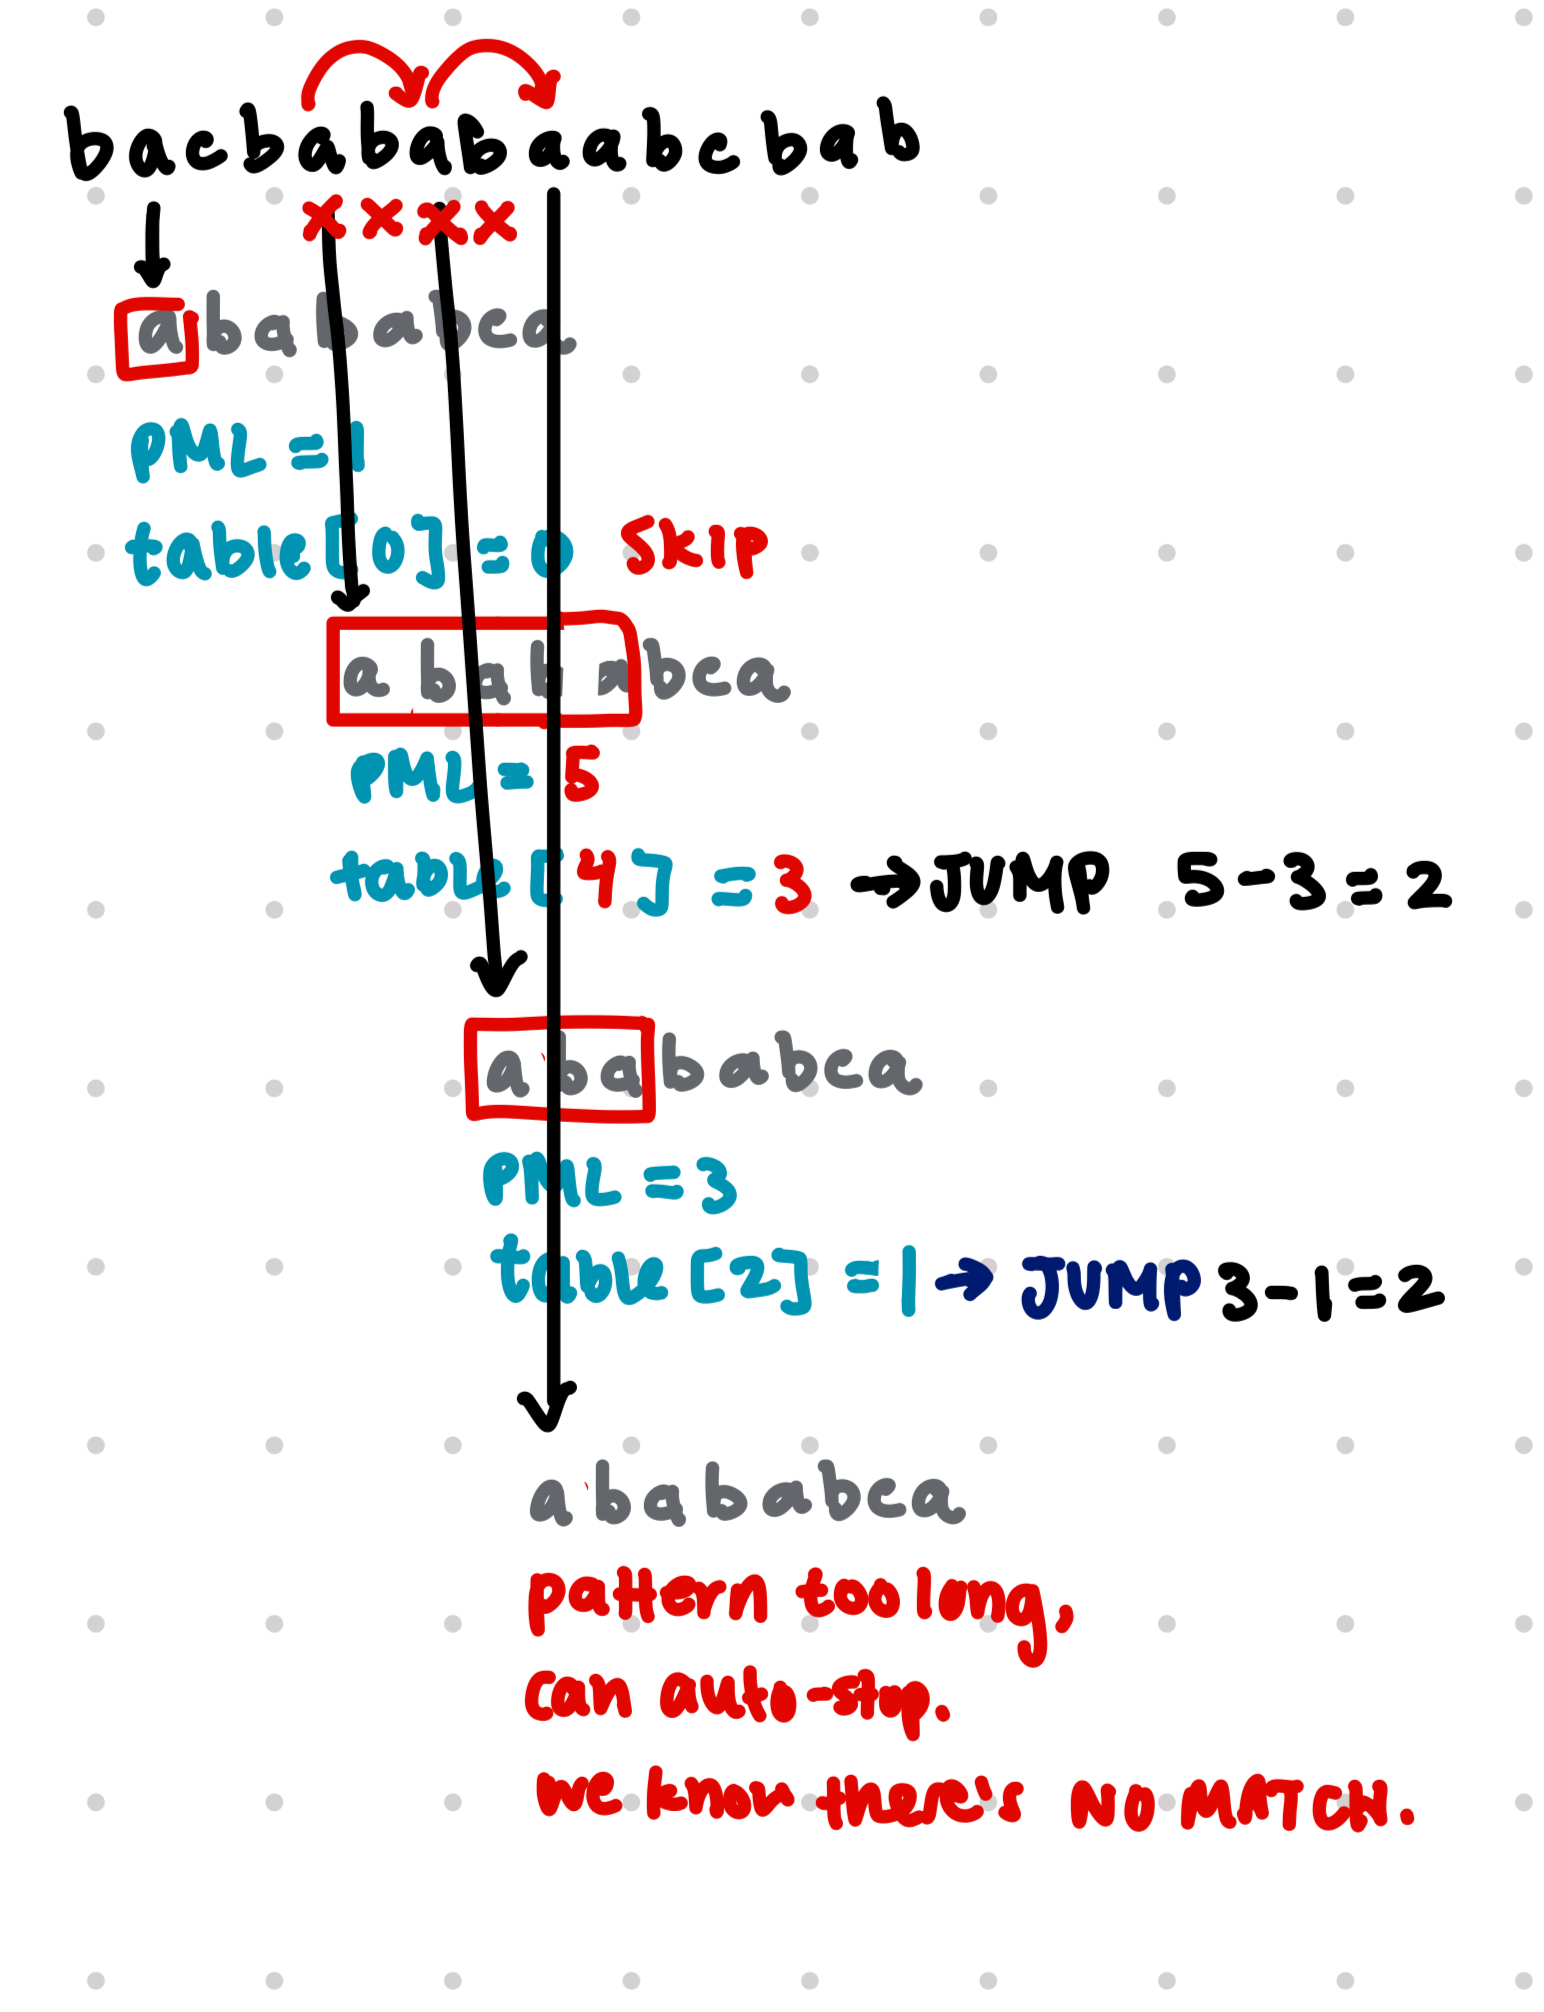 bacbababaabcbab
x x x x
abababca
PML = 1
table[0] = 0 SKIP
abababca
PML = 5
table[4] = 3 → JUMP 5-3=2
abababca
PML = 3
table[2] = 1 → JUMP 3-1=2
abababca
pattern too long,
can auto-stop.
we know there's NO MATCH.